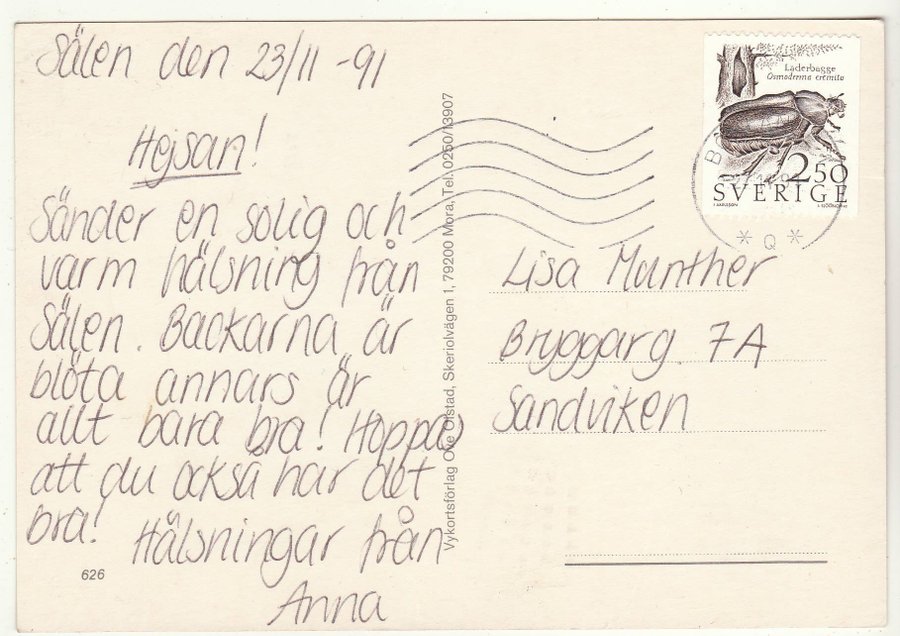 Sälen den 23/11 -91
Hejsan!
Sänder en solig och
varm hälsning från
Sälen. Backarna är
blöta annars är
allt bara bra! Hoppas
att du också har det
bra!
Hälsningar från
Anna
626
Vykortsförlag Ove Ofstad, Skeriolvägen 1, 79200 Mora, Tel. 0250/13907
Läderbagge
Osmoderma eremita
2.50
SVERIGE
* Q *
Lisa Munther
Bryggarg. 7A
Sandviken